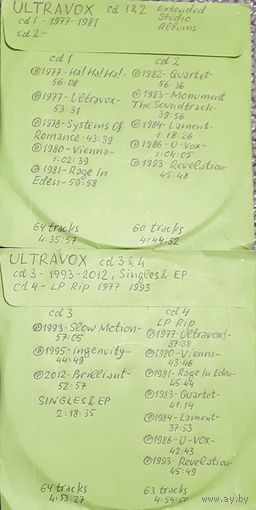 ULTRAVOX cd 1&2 Extended
Studio
Albums
cd 1 - 1977-1981
cd 2 -
cd 1
℗1977-Ha! Ha! Ha!-
56:08
℗1977-Ultravox-
53:31
℗1978-Systems Of
Romance-43:39
℗1980-Vienna-
1:02:39
℗1981-Rage In
Eden-59:58
64 tracks
4:35:57
cd 2
℗1982-Quartet-
56:36
℗1983-Monument
The Soundtrack-
39:56
℗1984-Lament-
1:18:26
℗1986-U-Vox-
1:04:05
℗1993-Revelation-
45:48
60 tracks
4:44:52
ULTRAVOX cd 3&4
cd 3 - 1993-2012, Singles & EP
cd 4 - LP Rip 1977-1993
cd 3
℗1993-Slow Motion-
57:05
℗1995-Ingenuity-
44:49
℗2012-Brilliant-
52:57
SINGLES & EP
2:18:35
64 tracks
4:53:27
cd 4
LP Rip
℗1977-Ultravox!-
37:38
℗1980-Vienna-
43:46
℗1981-Rage In Eden-
45:44
℗1983-Quartet-
41:14
℗1984-Lament-
37:53
℗1986-U-VOX-
42:43
℗1993-Revelation-
45:49
63 tracks
4:54:50
www.ay.by